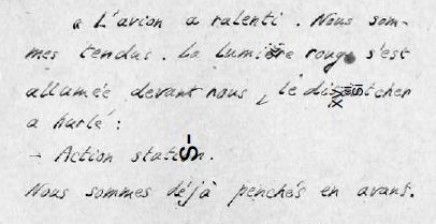 « L'avion a ralenti. Nous som-
mes tendus. La lumière rouge s'est
allumée devant nous, le
a hurlé :
- Action station.
Nous sommes déjà penchés en avant.